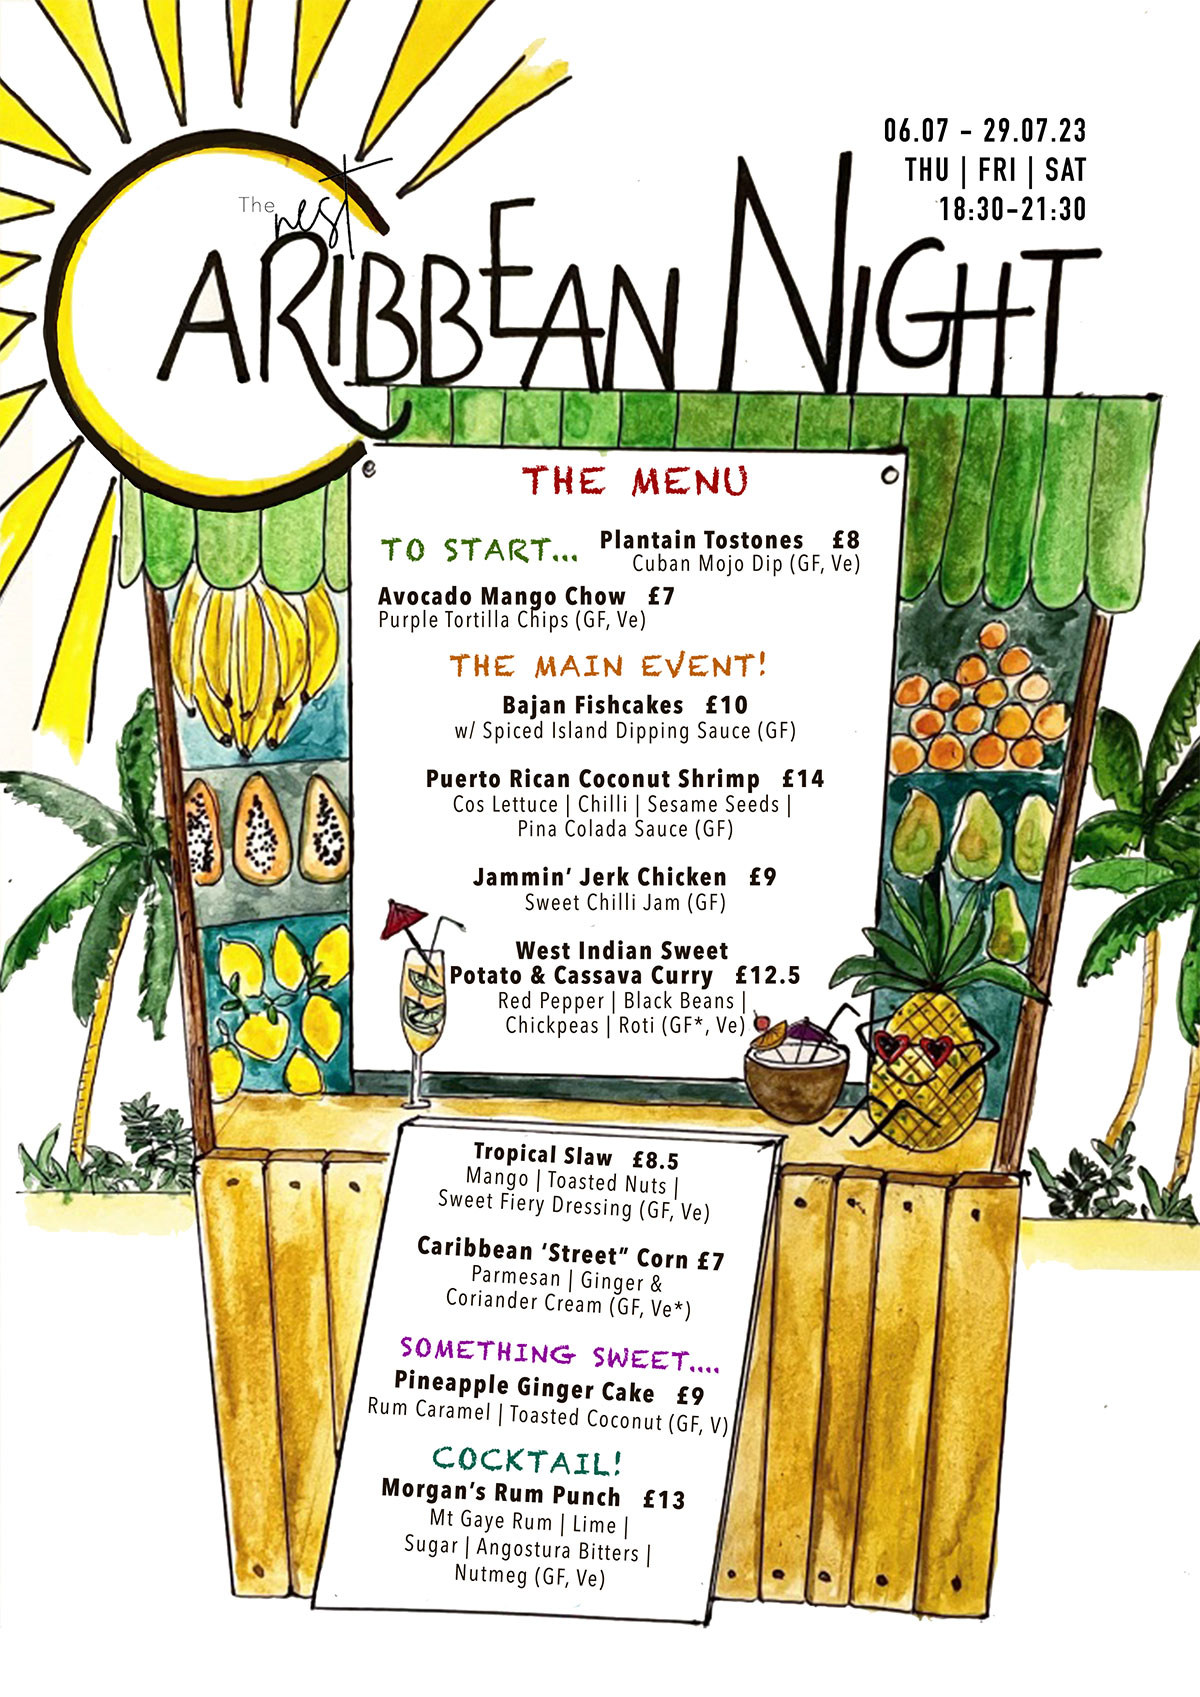 06.07 - 29.07.23
THU | FRI | SAT
18:30-21:30
The nest
CARIBBEAN NIGHT
THE MENU
TO START...
Plantain Tostones £8
Cuban Mojo Dip (GF, Ve)
Avocado Mango Chow £7
Purple Tortilla Chips (GF, Ve)
THE MAIN EVENT!
Bajan Fishcakes £10
w/ Spiced Island Dipping Sauce (GF)
Puerto Rican Coconut Shrimp £14
Cos Lettuce | Chilli | Sesame Seeds |
Pina Colada Sauce (GF)
Jammin’ Jerk Chicken £9
Sweet Chilli Jam (GF)
West Indian Sweet
Potato & Cassava Curry £12.5
Red Pepper | Black Beans |
Chickpeas | Roti (GF*, Ve)
Tropical Slaw £8.5
Mango | Toasted Nuts |
Sweet Fiery Dressing (GF, Ve)
Caribbean ‘Street” Corn £7
Parmesan | Ginger &
Coriander Cream (GF, Ve*)
SOMETHING SWEET....
Pineapple Ginger Cake £9
Rum Caramel | Toasted Coconut (GF, V)
COCKTAIL!
Morgan’s Rum Punch £13
Mt Gaye Rum | Lime |
Sugar | Angostura Bitters |
Nutmeg (GF, Ve)